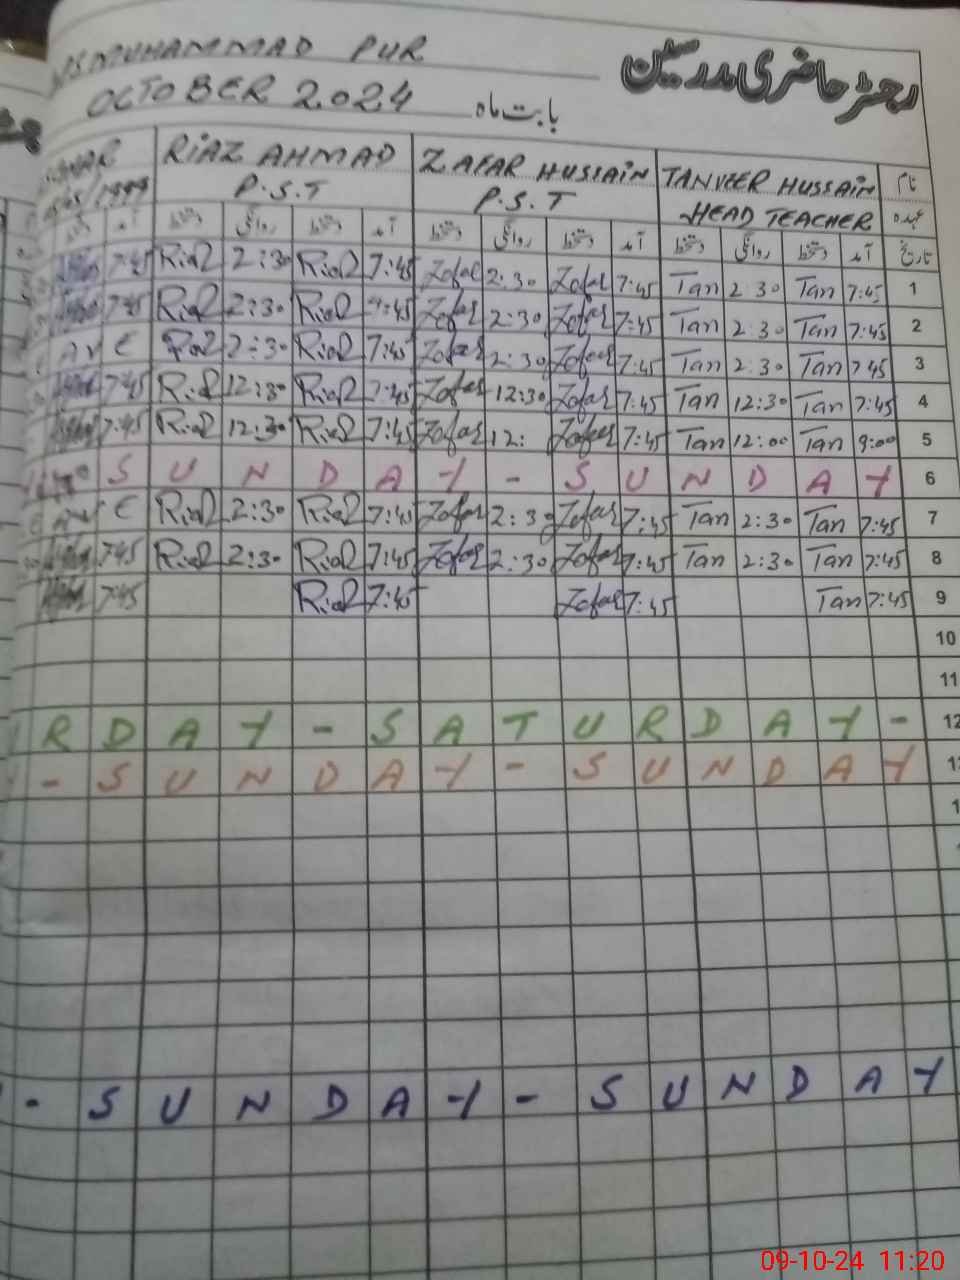 MUHAMMAD PUR
رجسٹر حاضری مدرسین
OCTOBER 2024 بابت ماہ
RIAZ AHMAD ZAFAR HUSSAIN TANVEER HUSSAIN نام
1999 P.S.T P.S.T HEAD TEACHER عہدہ
آمد دستخط روانگی دستخط آمد دستخط روانگی دستخط آمد دستخط روانگی دستخط آمد تاریخ
7:45 Riaz 2:30 Riaz 7:45 Zafar 2:30 Zafar 7:45 Tan 2:30 Tan 7:45 1
7:45 Riaz 2:30 Riaz 7:45 Zafar 2:30 Zafar 7:45 Tan 2:30 Tan 7:45 2
Riaz 2:30 Riaz 7:45 Zafar 2:30 Zafar 7:45 Tan 2:30 Tan 7:45 3
7:45 Riaz 12:30 Riaz 7:45 Zafar 12:30 Zafar 7:45 Tan 12:30 Tan 7:45 4
7:45 Riaz 12:30 Riaz 7:45 Zafar 12: Zafar 7:45 Tan 12:00 Tan 9:00 5
S U N D A Y - S U N D A Y 6
Riaz 2:30 Riaz 7:45 Zafar 2:30 Zafar 7:45 Tan 2:30 Tan 7:45 7
7:45 Riaz 2:30 Riaz 7:45 Zafar 2:30 Zafar 7:45 Tan 2:30 Tan 7:45 8
7:45 Riaz 7:45 Zafar 7:45 Tan 7:45 9
10
11
R D A Y - S A T U R D A Y - 12
- S U N D A Y - S U N D A Y
- S U N D A Y - S U N D A Y
09-10-24 11:20